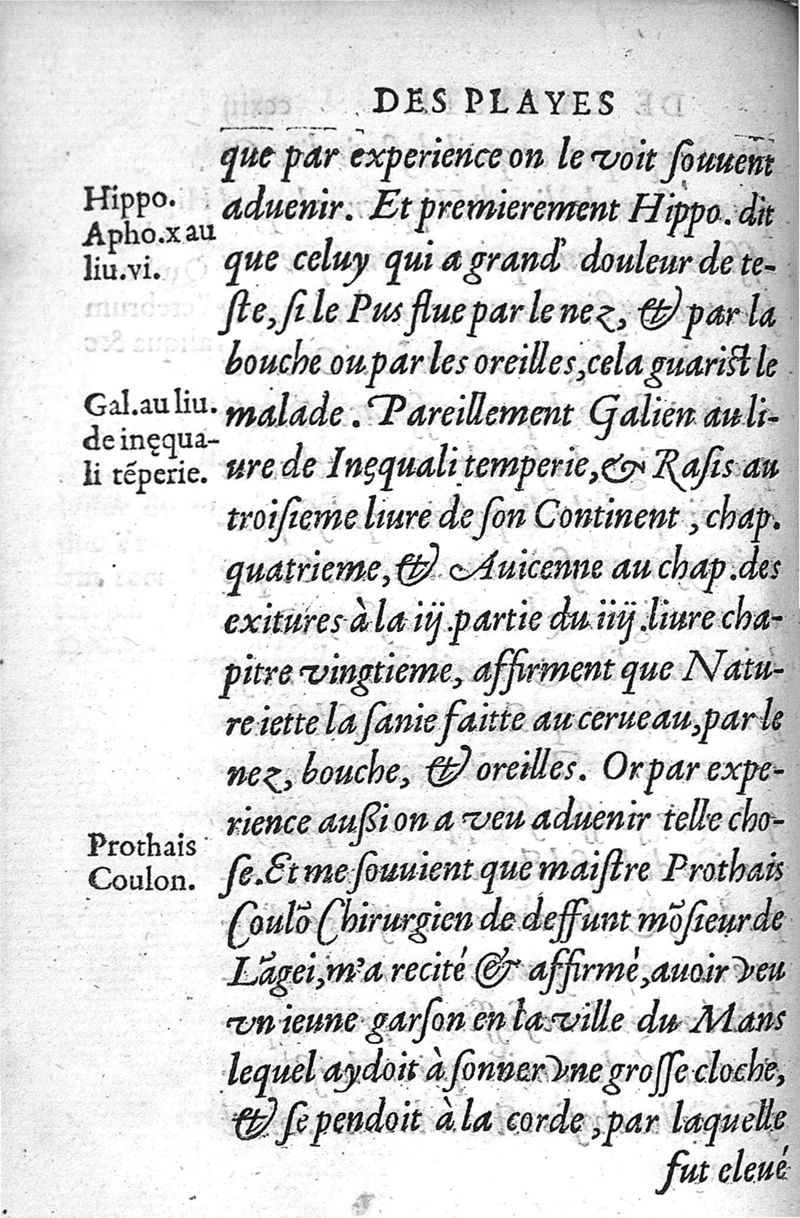 DES PLAYES
que par experience on le voit ſouuent
Hippo.
Apho.x au
liu.vi.
aduenir. Et premierement Hippo. dit
que celuy qui a grand' douleur de te-
ſte, ſi le Pus flue par le nez, & par la
bouche ou par les oreilles, cela guariſt le
Gal.au liu.
de inęqua-
li tẽperie.
malade. Pareillement Galien au li-
ure de Inęquali temperie, & Raſis au
troiſieme liure de ſon Continent, chap.
quatrieme, & Auicenne au chap. des
exitures à la iij. partie du iiij. liure cha-
pitre vingtieme, affirment que Natu-
re iette la ſanie faitte au cerueau, par le
nez, bouche, & oreilles. Or par expe-
rience außi on a veu aduenir telle cho-
Prothais
Coulon.
ſe. Et me ſouuient que maiſtre Prothais
Coulõ Chirurgien de deffunt mõſieur de
Lãgei, m'a recité & affirmé, auoir veu
vn ieune garſon en la ville du Mans
lequel aydoit à ſonner vne groſſe cloche,
& ſe pendoit à la corde, par laquelle
fut eleué